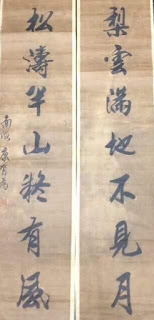 梨雲滿地不見月
松濤半山疑有風
南海 康有為